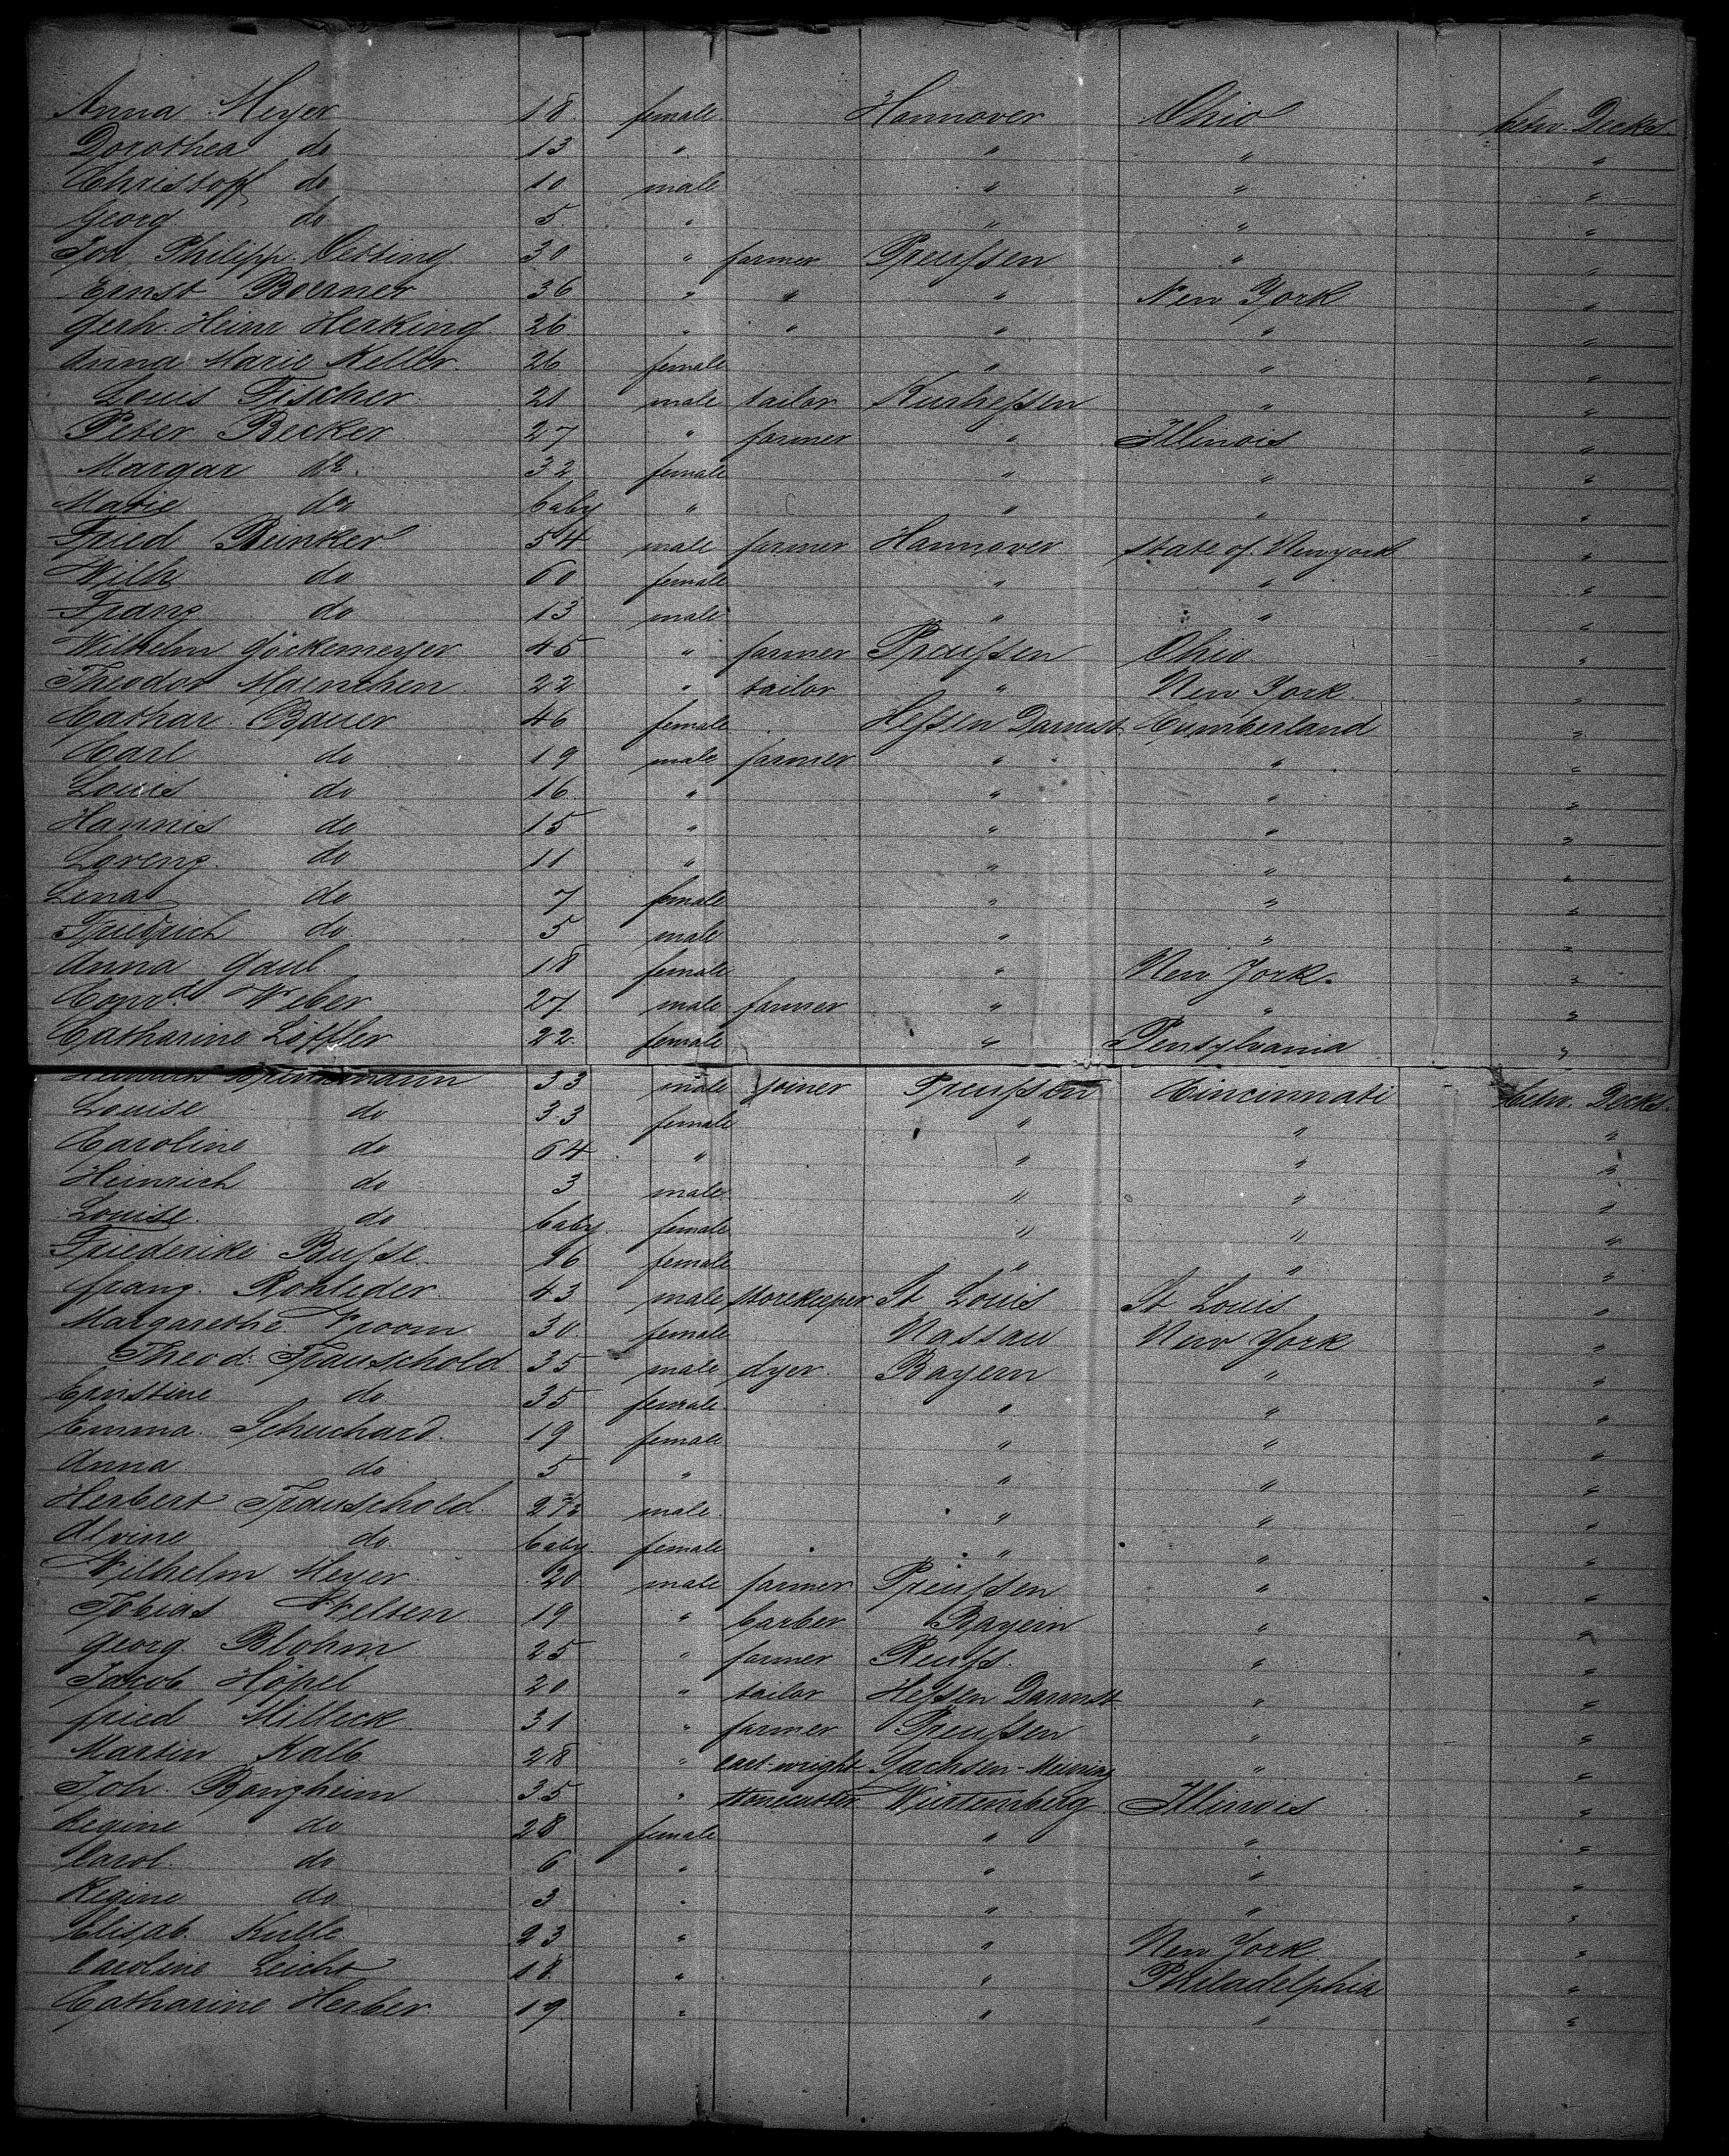 Anna Meyer 18. female Hannover Ohio betw. Decks.
Dorothea do 13 " " " "
Christoff do 10 male " " "
Georg do 5. " " " "
Joh Philipp Oetting 30 " farmer Preußen " "
Ernst Boerner 36 " " " New York "
Gerh. Heinr Herking 26 " " " " "
Anna Marie Keller. 26 female " " "
Louis Fischer. 21 male tailor Kurheßen " "
Peter Becker 27 " farmer " Illinois "
Margar do. 32 female " " "
Marie do baby " " " "
Fried Beinker 54 male farmer Hannover state of Newyork "
Wilh do 60 female " " "
Franz do 13 male " " "
Wilhelm Göckemeyer 45 " farmer Preußen Ohio "
Theodor Maenchen 22 " tailor " New York "
Cathar. Bauer 46 female Heßen Darmst. Cumberland "
Carl do 19 male farmer " " "
Louis do 16 " " " "
Hannis do 15 " " " "
Lorenz. do 11 " " " "
Lena do 7 female " " "
Friedrich do 5 male " " "
Anna Gaul. 18 female " New York. "
Conrd Weber 27. male farmer " " "
Catharine Löffler 22. female " Pensylvania "
Heinrich 33 male joiner Preußen Cincinnati betw. Decks.
Louise do 33 female " " "
Caroline do 64 " " " "
Heinrich do 3 male " " "
Louise. do baby. female " " "
Friederike Buße. 16 female " " "
Franz. Rohleder. 43 male storekeeper St Louis St Louis "
Margarethe Vroom 30. female Nassau New York "
Theod. Trauschold 35 male dyer. Bayern " "
Ernstine do. 35 female " " "
Emma. Schuchard. 19 female " " "
Anna do 5 " " " "
Herbert Trauschold. 2 1/2 male. " " "
Alvine do. baby. female " " "
Wilhelm Meyer. 20 male farmer Preußen " "
Tobias Welsen 19 " barber Bayern " "
Georg. Blohm. 25 " farmer Reuß. " "
Jakob Höpel 20 " tailor Heßen Darmst. " "
Fried Milleck 31 " farmer Preußen " "
Martin Kalb 28 " cart-wright Sachsen-Meining " "
Joh. Bongheim 35 " stonecutter Würtemberg. Illinois "
Regine do 28 female " " "
Carol. do 6 " " " "
Regine do 3 " " " "
Elisab. Kulle 23 " " New York "
Caroline Leicht 18. " " Philadelphia "
Catharine Herber. 19. " " " "